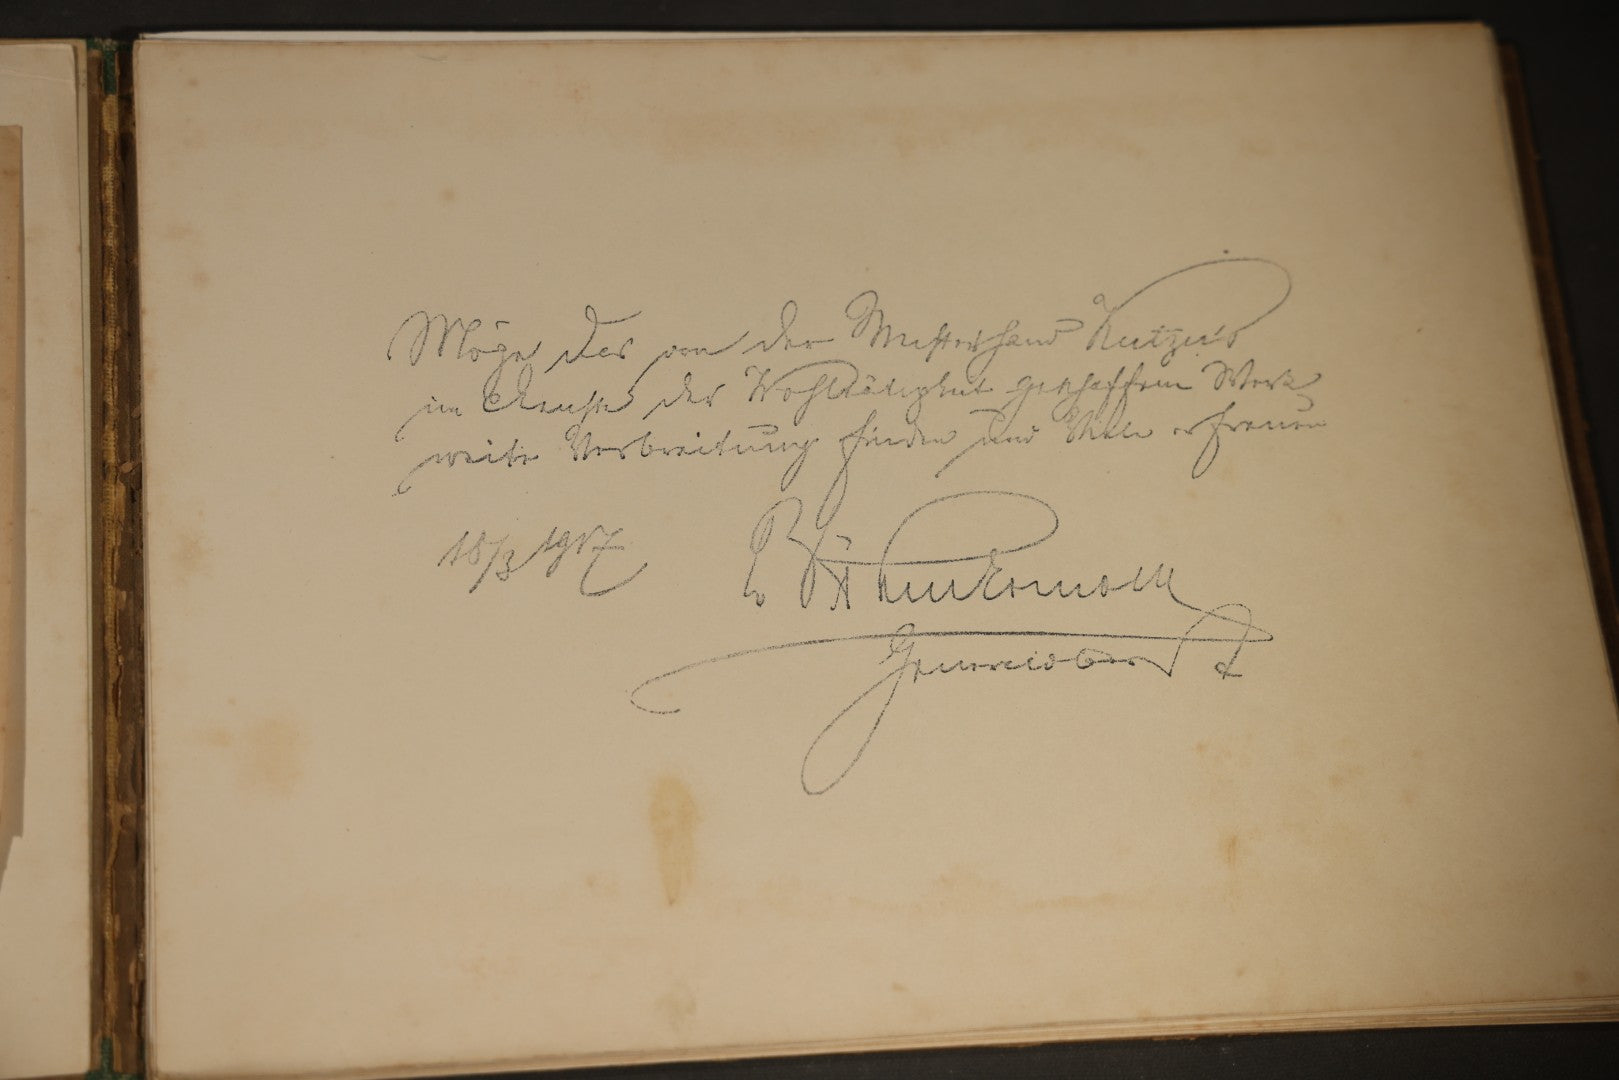 Möge das von der Meisterhand Kutzer's
im Dienste der Wohltätigkeit geschaffene Werk
weite Verbreitung finden und Viele erfreuen
18/3 1917
Generaloberst